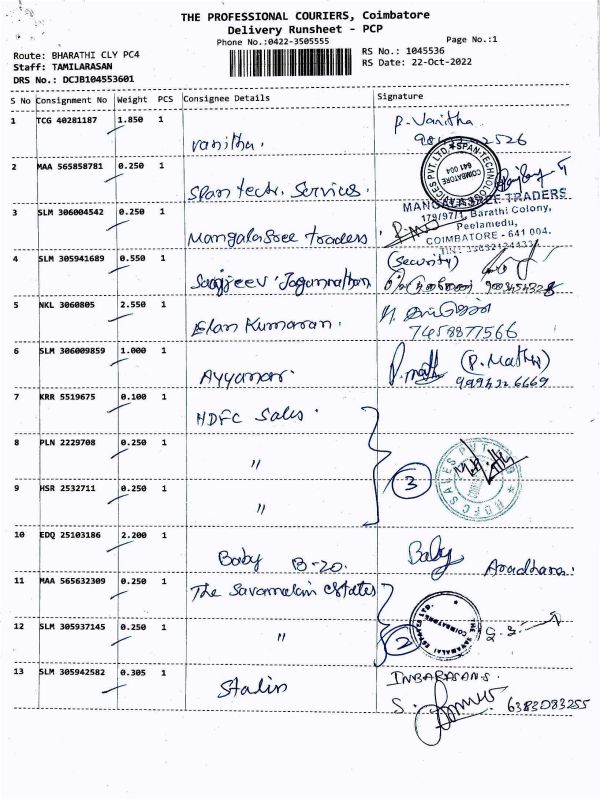 THE PROFESSIONAL COURIERS, Coimbatore
Delivery Runsheet - PCP
Phone No.:0422-3505555
Page No.:1
Route: BHARATHI CLY PC4
RS No.: 1045536
Staff: TAMILARASAN
RS Date: 22-Oct-2022
DRS No.: DCJB104553601
S No Consignment No Weight PCS Consignee Details Signature
1 TCG 40281187 1.850 1 vanitha. P. Vanitha
2 MAA 565858781 0.250 1 Span Tech. Services.
SPAN-TECHNOLOGY SERVICES PVT. LTD. COIMBATORE 641 004
3 SLM 306004542 0.250 1 Mangala Sree traders
MANGALA SREE TRADERS
179/97/1, Barathi Colony,
Peelamedu,
COIMBATORE - 641 004.
4 SLM 305941689 0.550 1 Jagannathan (Security)
5 NKL 3060805 2.550 1 Elan Kumaran.
7458877566
6 SLM 306009859 1.000 1 Ayyanar. P. (P. )
7 KRR 5519675 0.100 1 HDFC Sales.
8 PLN 2229708 0.250 1 "
3
HDFC SALES PVT. LTD
9 HSR 2532711 0.250 1 "
10 EDQ 25103186 2.200 1 Baby B-20. Baby Aradhana.
11 MAA 565632309 0.250 1 The estates
12 SLM 305937145 0.250 1 "
2
13 SLM 305942582 0.305 1 Stalin INBARASAN.S
S. 6383083255